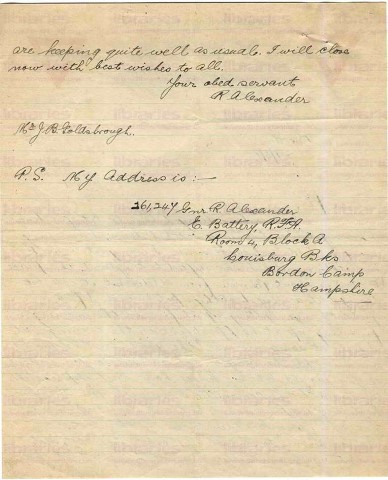 are keeping quite well as usual. I will close
now with best wishes to all.
Your obed servant
R Alexander
Mr J. B. Goldsbrough.
P.S. My Address is :—
261,247 Gnr R Alexander
E. Battery, R.F.A.
Room 4, Block A
Louisburg Bks
Bordon Camp
Hampshire